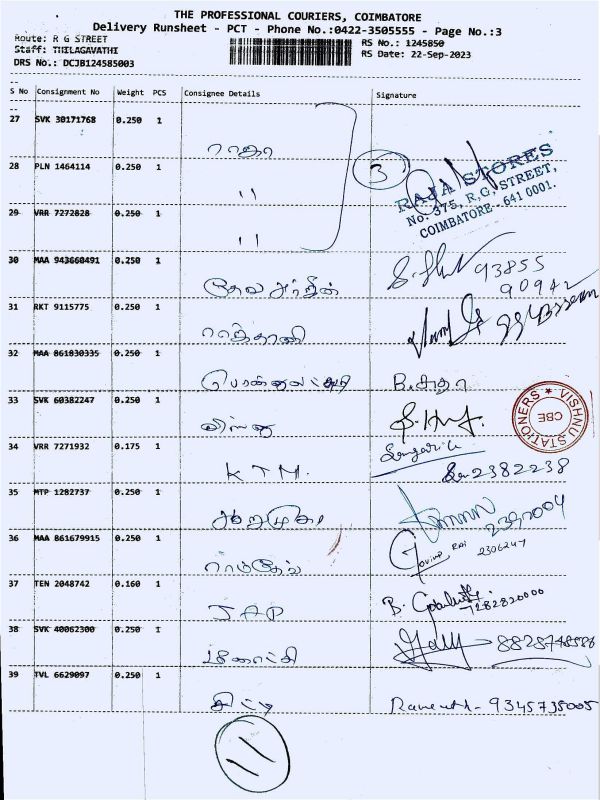 THE PROFESSIONAL COURIERS, COIMBATORE
Delivery Runsheet - PCT - Phone No.:0422-3505555 - Page No.:3
Route: R G STREET
RS No.: 1245850
Staff: THILAGAVATHI
RS Date: 22-Sep-2023
DRS No.: DCJB124585003
S No Consignment No Weight PCS Consignee Details Signature
27 SVK 30171768 0.250 1
ராஜா
28 PLN 1464114 0.250 1
"
3
RAJA STORES
No. 375, R.G. STREET,
COIMBATORE - 641 0001.
29 VRR 7272828 0.250 1
"
30 MAA 943660491 0.250 1
93855
90942
31 RKT 9115775 0.250 1
32 MAA 861830335 0.250 1
B. சுதா
33 SVK 60382247 0.250 1
விஷ்ணு
VISHNU STATIONERS
CBE
34 VRR 7271932 0.175 1
KTM.
2382238
35 MTP 1282737 0.250 1
36 MAA 861679915 0.250 1
ராம்தேவ்
2306247
37 TEN 2048742 0.160 1
JAP
7282820000
38 SVK 40062300 0.250 1
மீனாட்சி
39 TVL 6629097 0.250 1
சிட்டி
9345735005
11